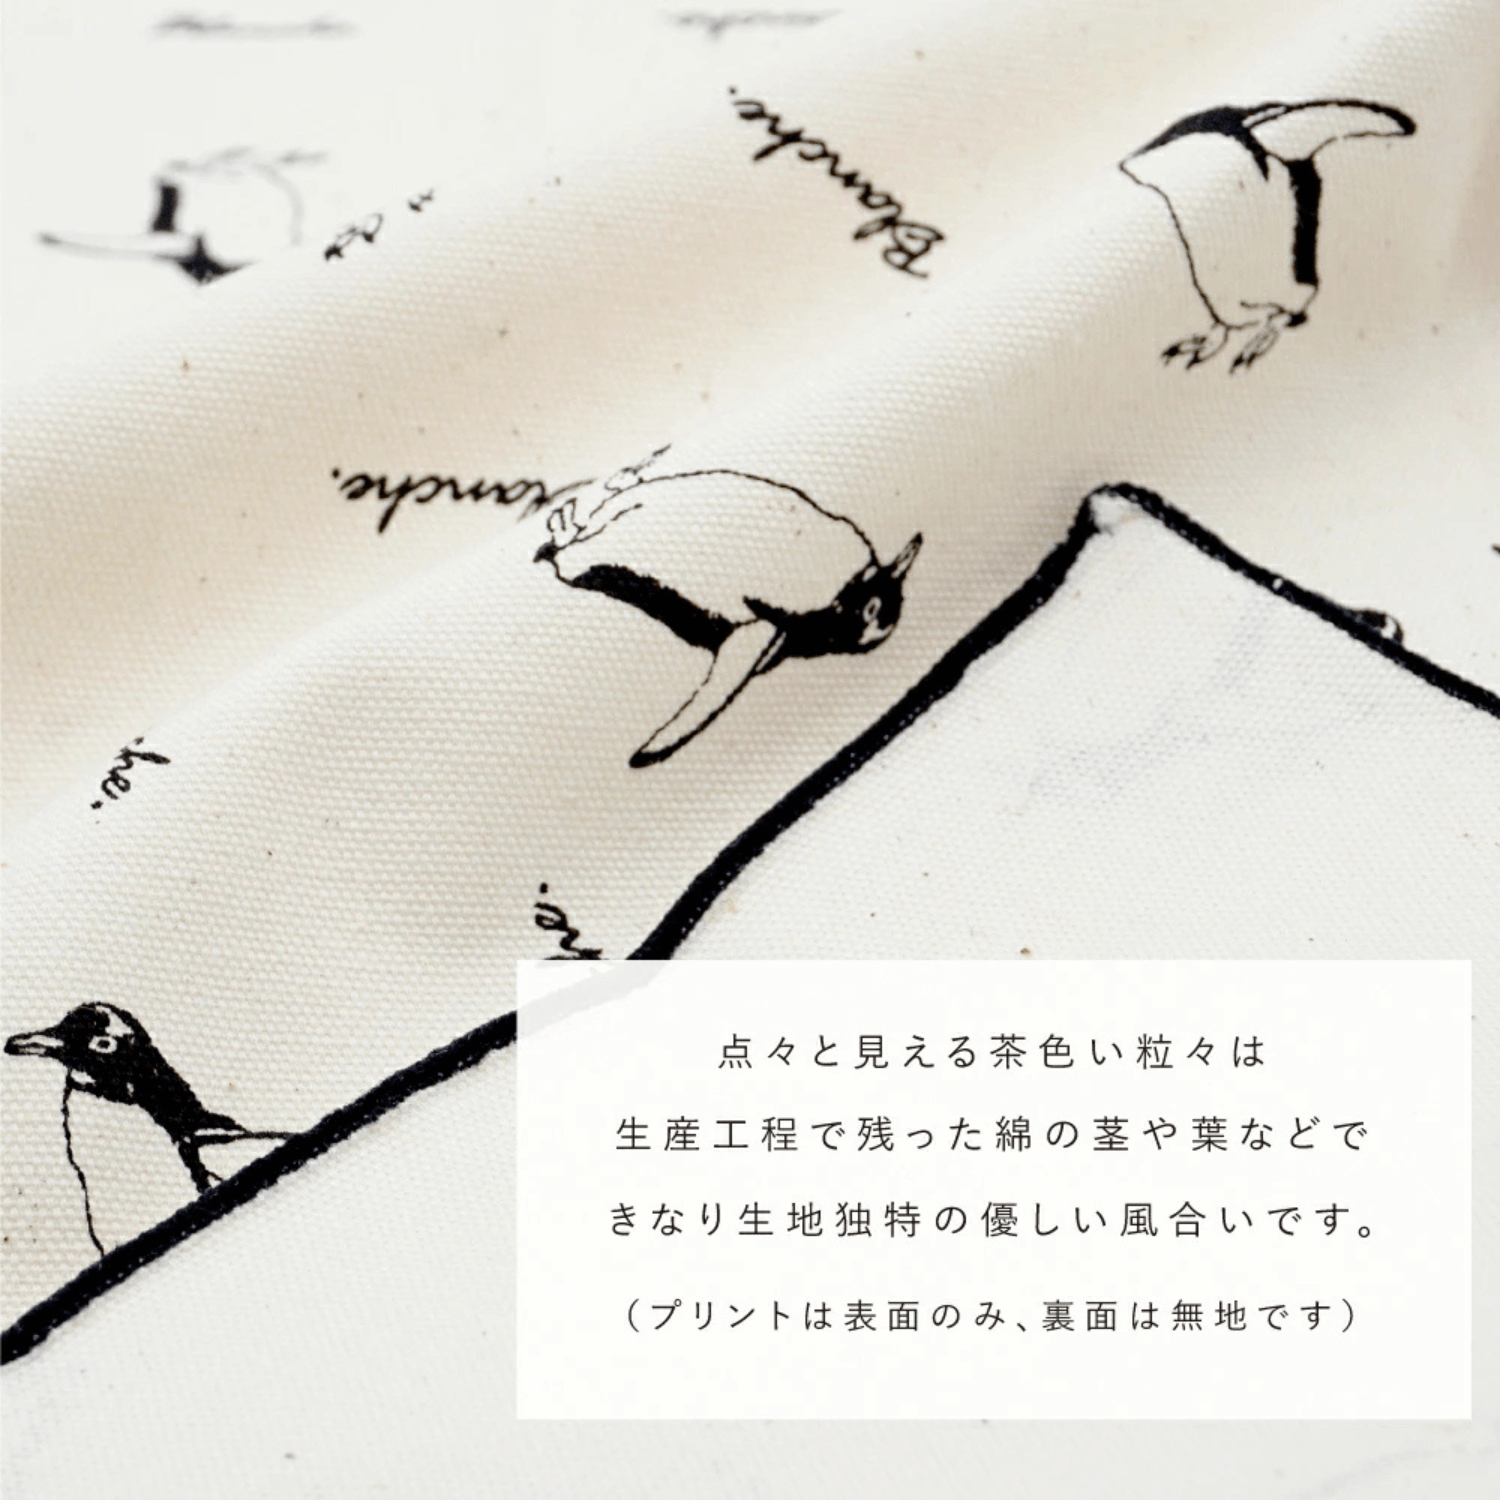 Blanche.
anche.
he.
点々と見える茶色い粒々は
生産工程で残った綿の茎や葉などで
きなり生地独特の優しい風合いです。
（プリントは表面のみ、裏面は無地です）